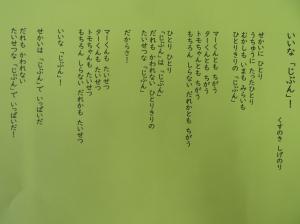 いいな「じぶん」！
くすのき しげのり
せかいに ひとり
うちゅうに たったひとり
むかしも いまも みらいも
ひとりきりの 「じぶん」
マーくんとも ちがう
ターくんとも ちがう
トモちゃんとも ちがう
もちろん しらない だれかとも ちがう
ひとり ひとり
「じぶん」は 「じぶん」
だれも かわれない ひとりきりの
たいせつな 「じぶん」
だからさ！
マーくんも たいせつ
ターくんも たいせつ
トモちゃんも たいせつ
もちろん しらない だれかも たいせつ
いいな 「じぶん」！
せかいは 「じぶん」で いっぱいだ
だれも かわれない
たいせつな 「じぶん」で いっぱいだ！